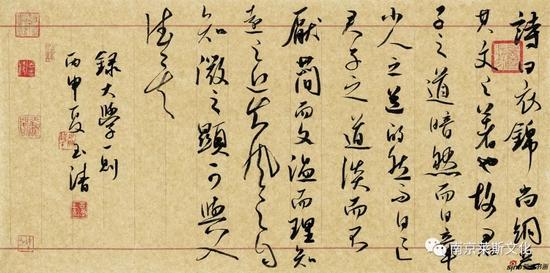 詩曰衣錦尚絅惡
其文之著也故君
子之道暗然而日章
小人之道的然而日亡
君子之道淡而不
厭簡而文溫而理知
遠之近知風之自
知微之顯可與入
德矣
錄大學一則
丙申夏玉清
南京莱斯文化